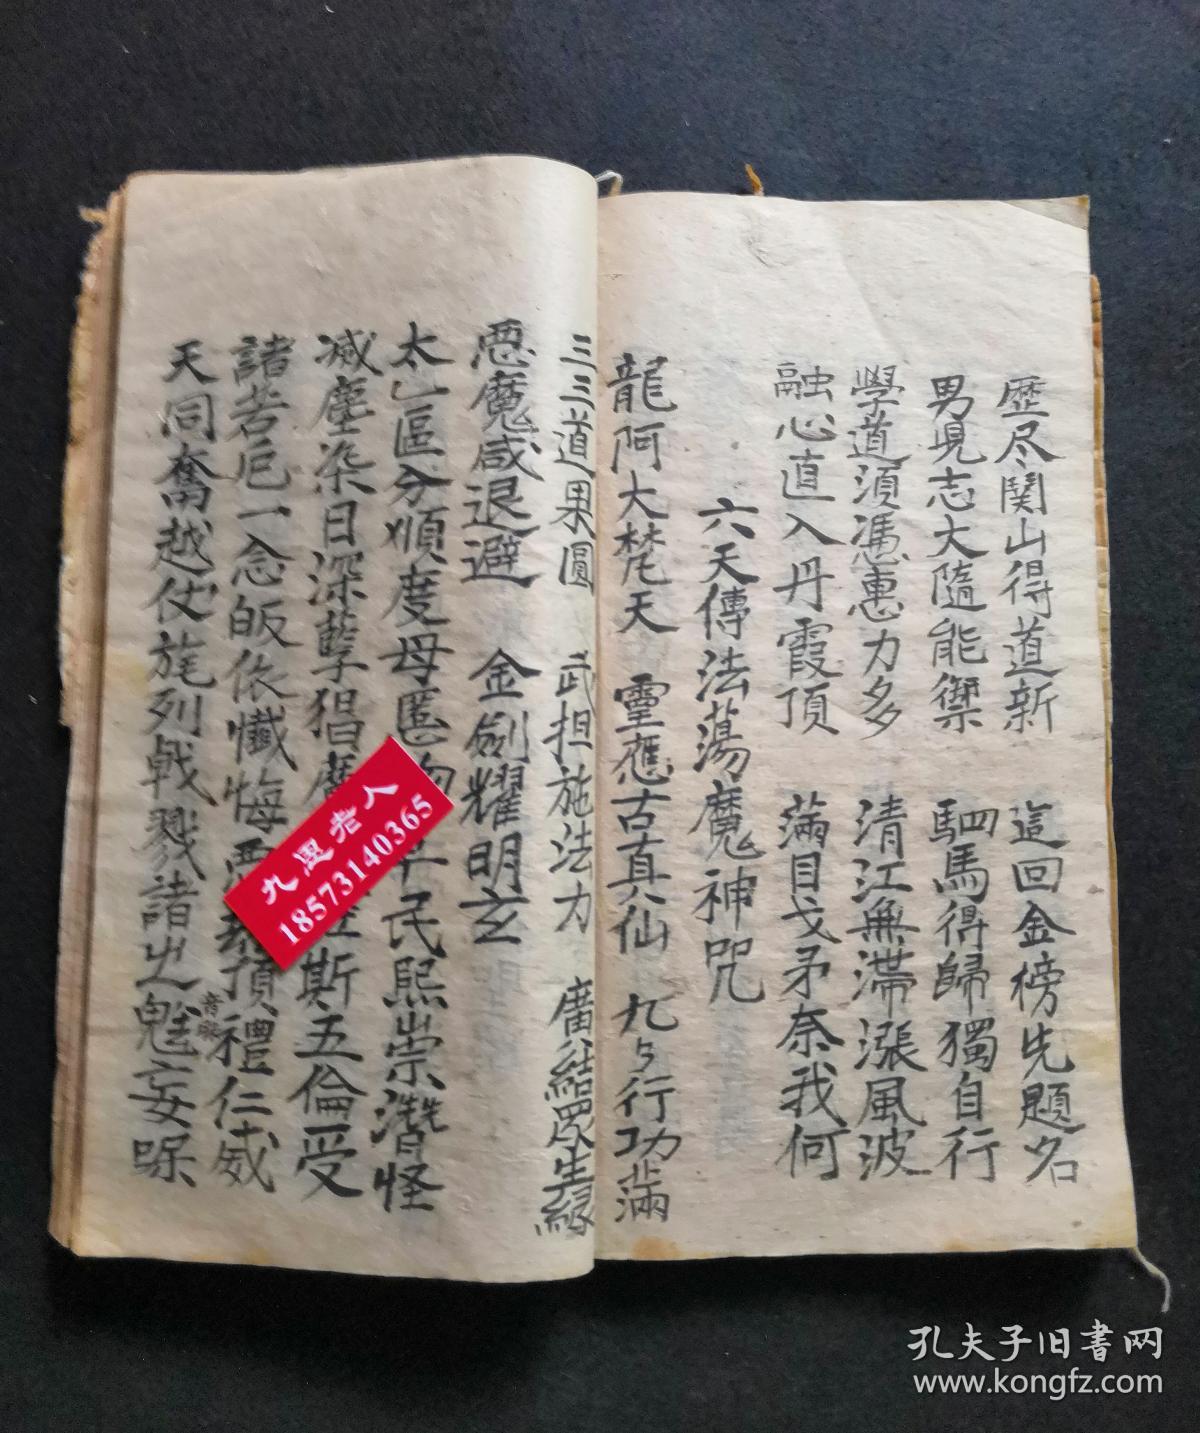 歷尽関山得道新 這回金榜先題名
男児志大隨能禦 駟馬得歸獨自行
學道須憑惠力多 清江無滯漲風波
融心直入丹霞頂 滿目戈矛奈我何
六天傳法蕩魔神咒
龍阿大梵天 靈應古真仙 九々行功滿
三三道果圓 武担施法力 廣結眾生緣
惡魔咸退避 金劍耀明玄
太乚區分順度母匿 民熙崇潛怪
减塵染日深孽猖 斯五倫受
諸若巳一念皈依懺悔 頂禮仁威
音
天同奮越仗旄列戟戮諸 魁妄
九里老人
18573140365
孔夫子旧書网
www.kongfz.com